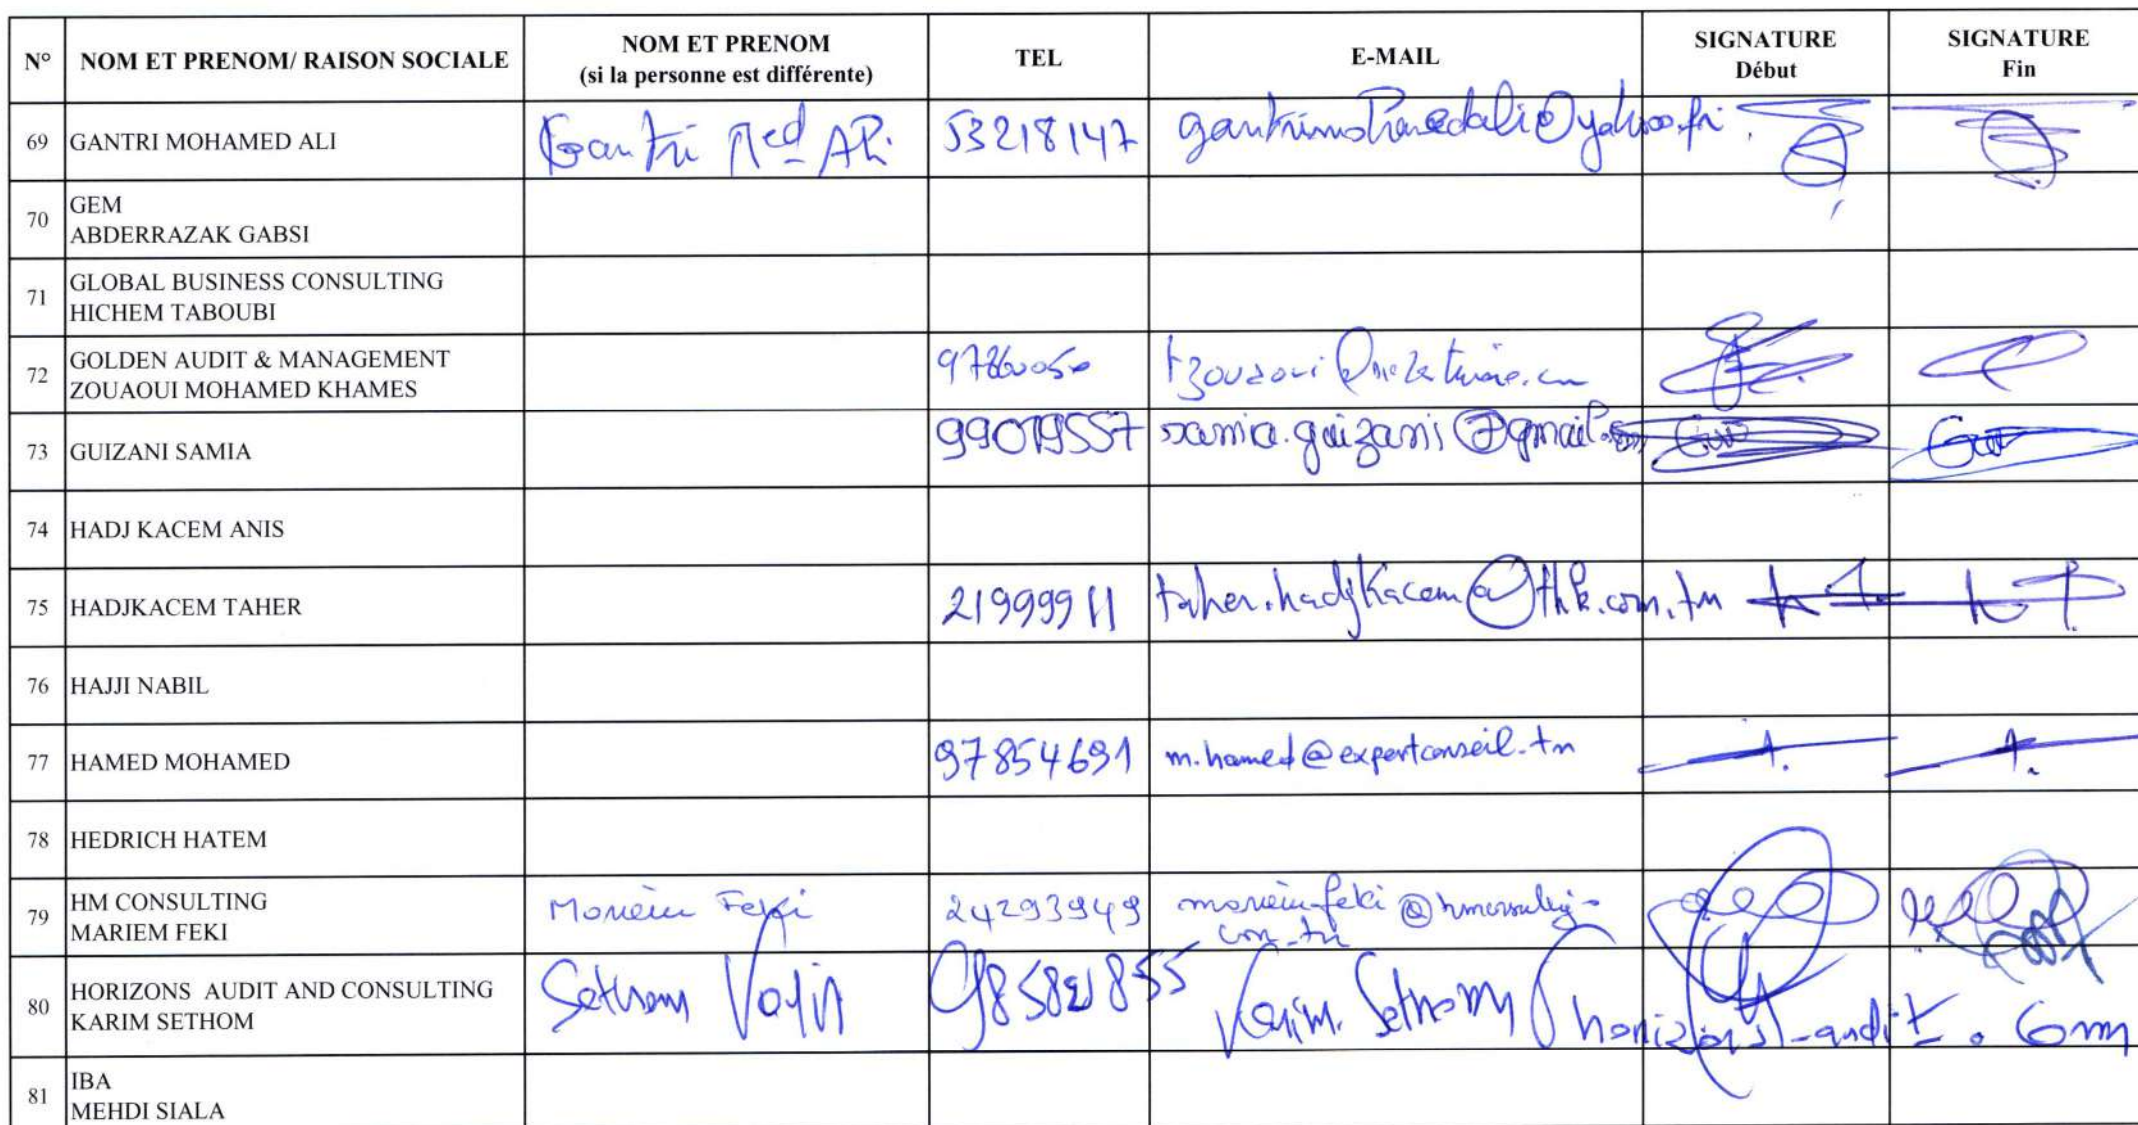 N° NOM ET PRENOM/ RAISON SOCIALE NOM ET PRENOM TEL E-MAIL SIGNATURE SIGNATURE
(si la personne est différente) Début Fin
69 GANTRI MOHAMED ALI Gantri Med Ali 53218147 gantrimohamedali@yahoo.fr
70 GEM
ABDERRAZAK GABSI
71 GLOBAL BUSINESS CONSULTING
HICHEM TABOUBI
72 GOLDEN AUDIT & MANAGEMENT
ZOUAOUI MOHAMED KHAMES
73 GUIZANI SAMIA 99019557 samia.guizani@gmail.com
74 HADJ KACEM ANIS
75 HADJKACEM TAHER 21999911 taher.hadjkacem@thk.com.tn
76 HAJJI NABIL
77 HAMED MOHAMED 97854691 m.hamed@expertconseil.tn
78 HEDRICH HATEM
79 HM CONSULTING Mariem Feki 24293949
MARIEM FEKI com.tn
80 HORIZONS AUDIT AND CONSULTING Sethom Karim Karim.Sethom horizons-audit.com
KARIM SETHOM
81 IBA
MEHDI SIALA